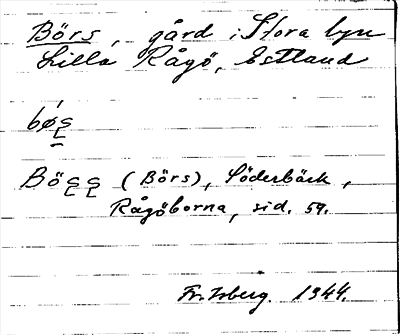 Börs, gård i Stora byn
Lilla Rågö, Estland
Bö
(Börs), Söderbäck,
Rågöborna, sid. 59.
Fr. Isberg. 1944.